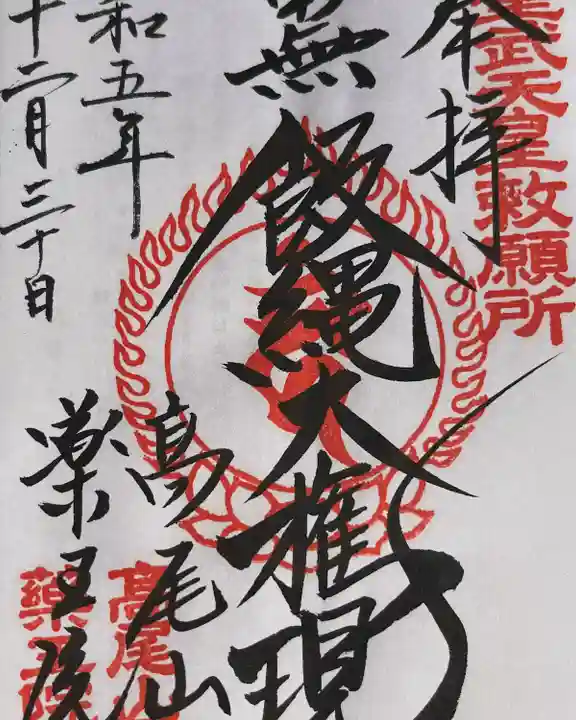 聖武天皇敕願所
奉拝
無飯縄大権現
高尾山
薬王院
高尾山
薬王院
和五年
十二月三十日